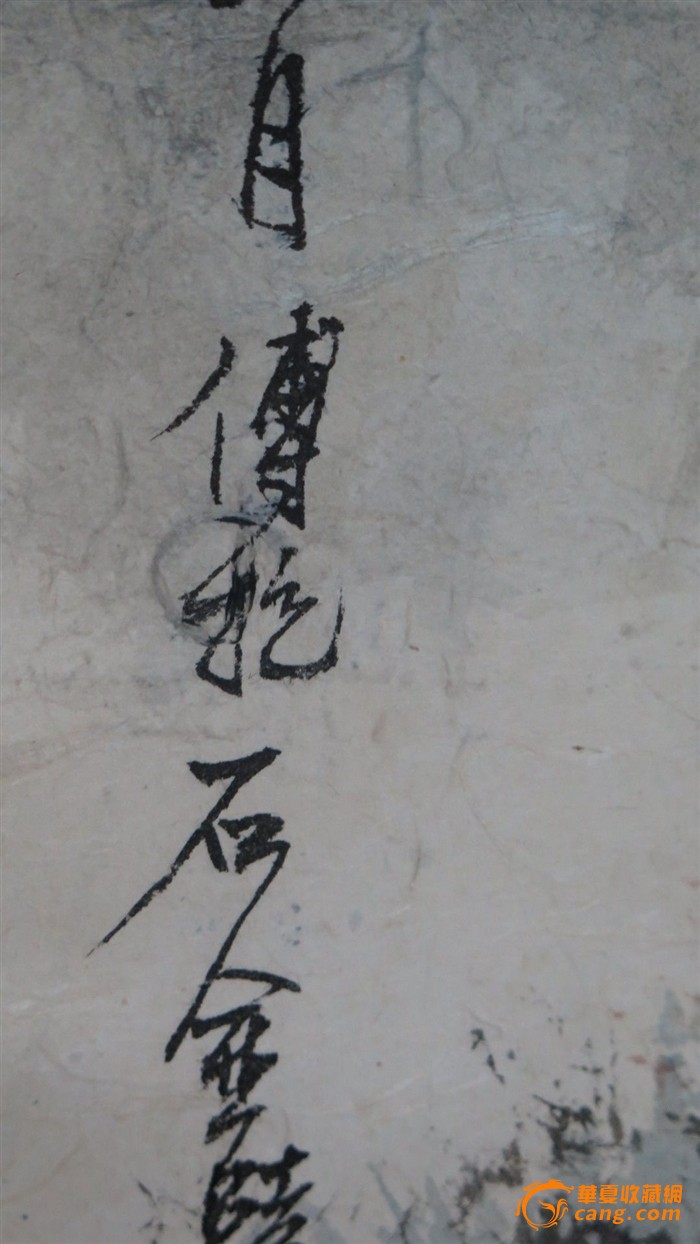 月傅抱石金陵
華夏收藏網
cang.com